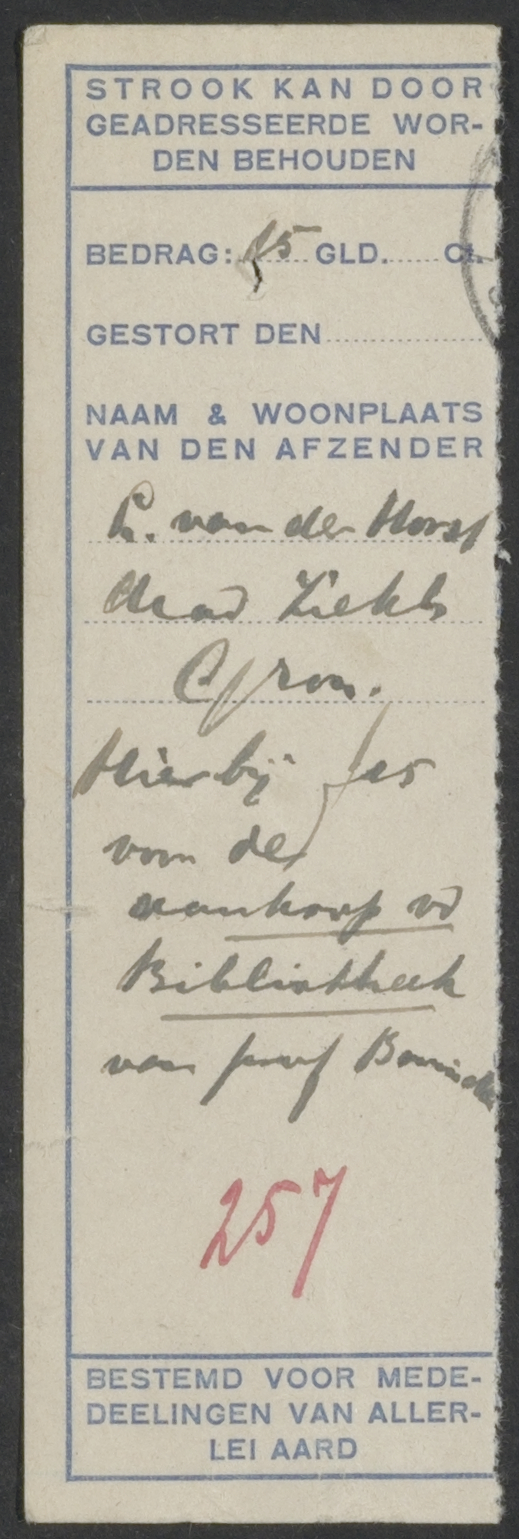 STROOK KAN DOOR
GEADRESSEERDE WOR-
DEN BEHOUDEN
BEDRAG: 15 GLD. Ct.
GESTORT DEN
NAAM & WOONPLAATS
VAN DEN AFZENDER
L. van der Horst
Acad Ziekh
Gron.
Hierbij f 15
voor de
aankoop vd
Bibliotheek
van prof
257
BESTEMD VOOR MEDE-
DEELINGEN VAN ALLER-
LEI AARD